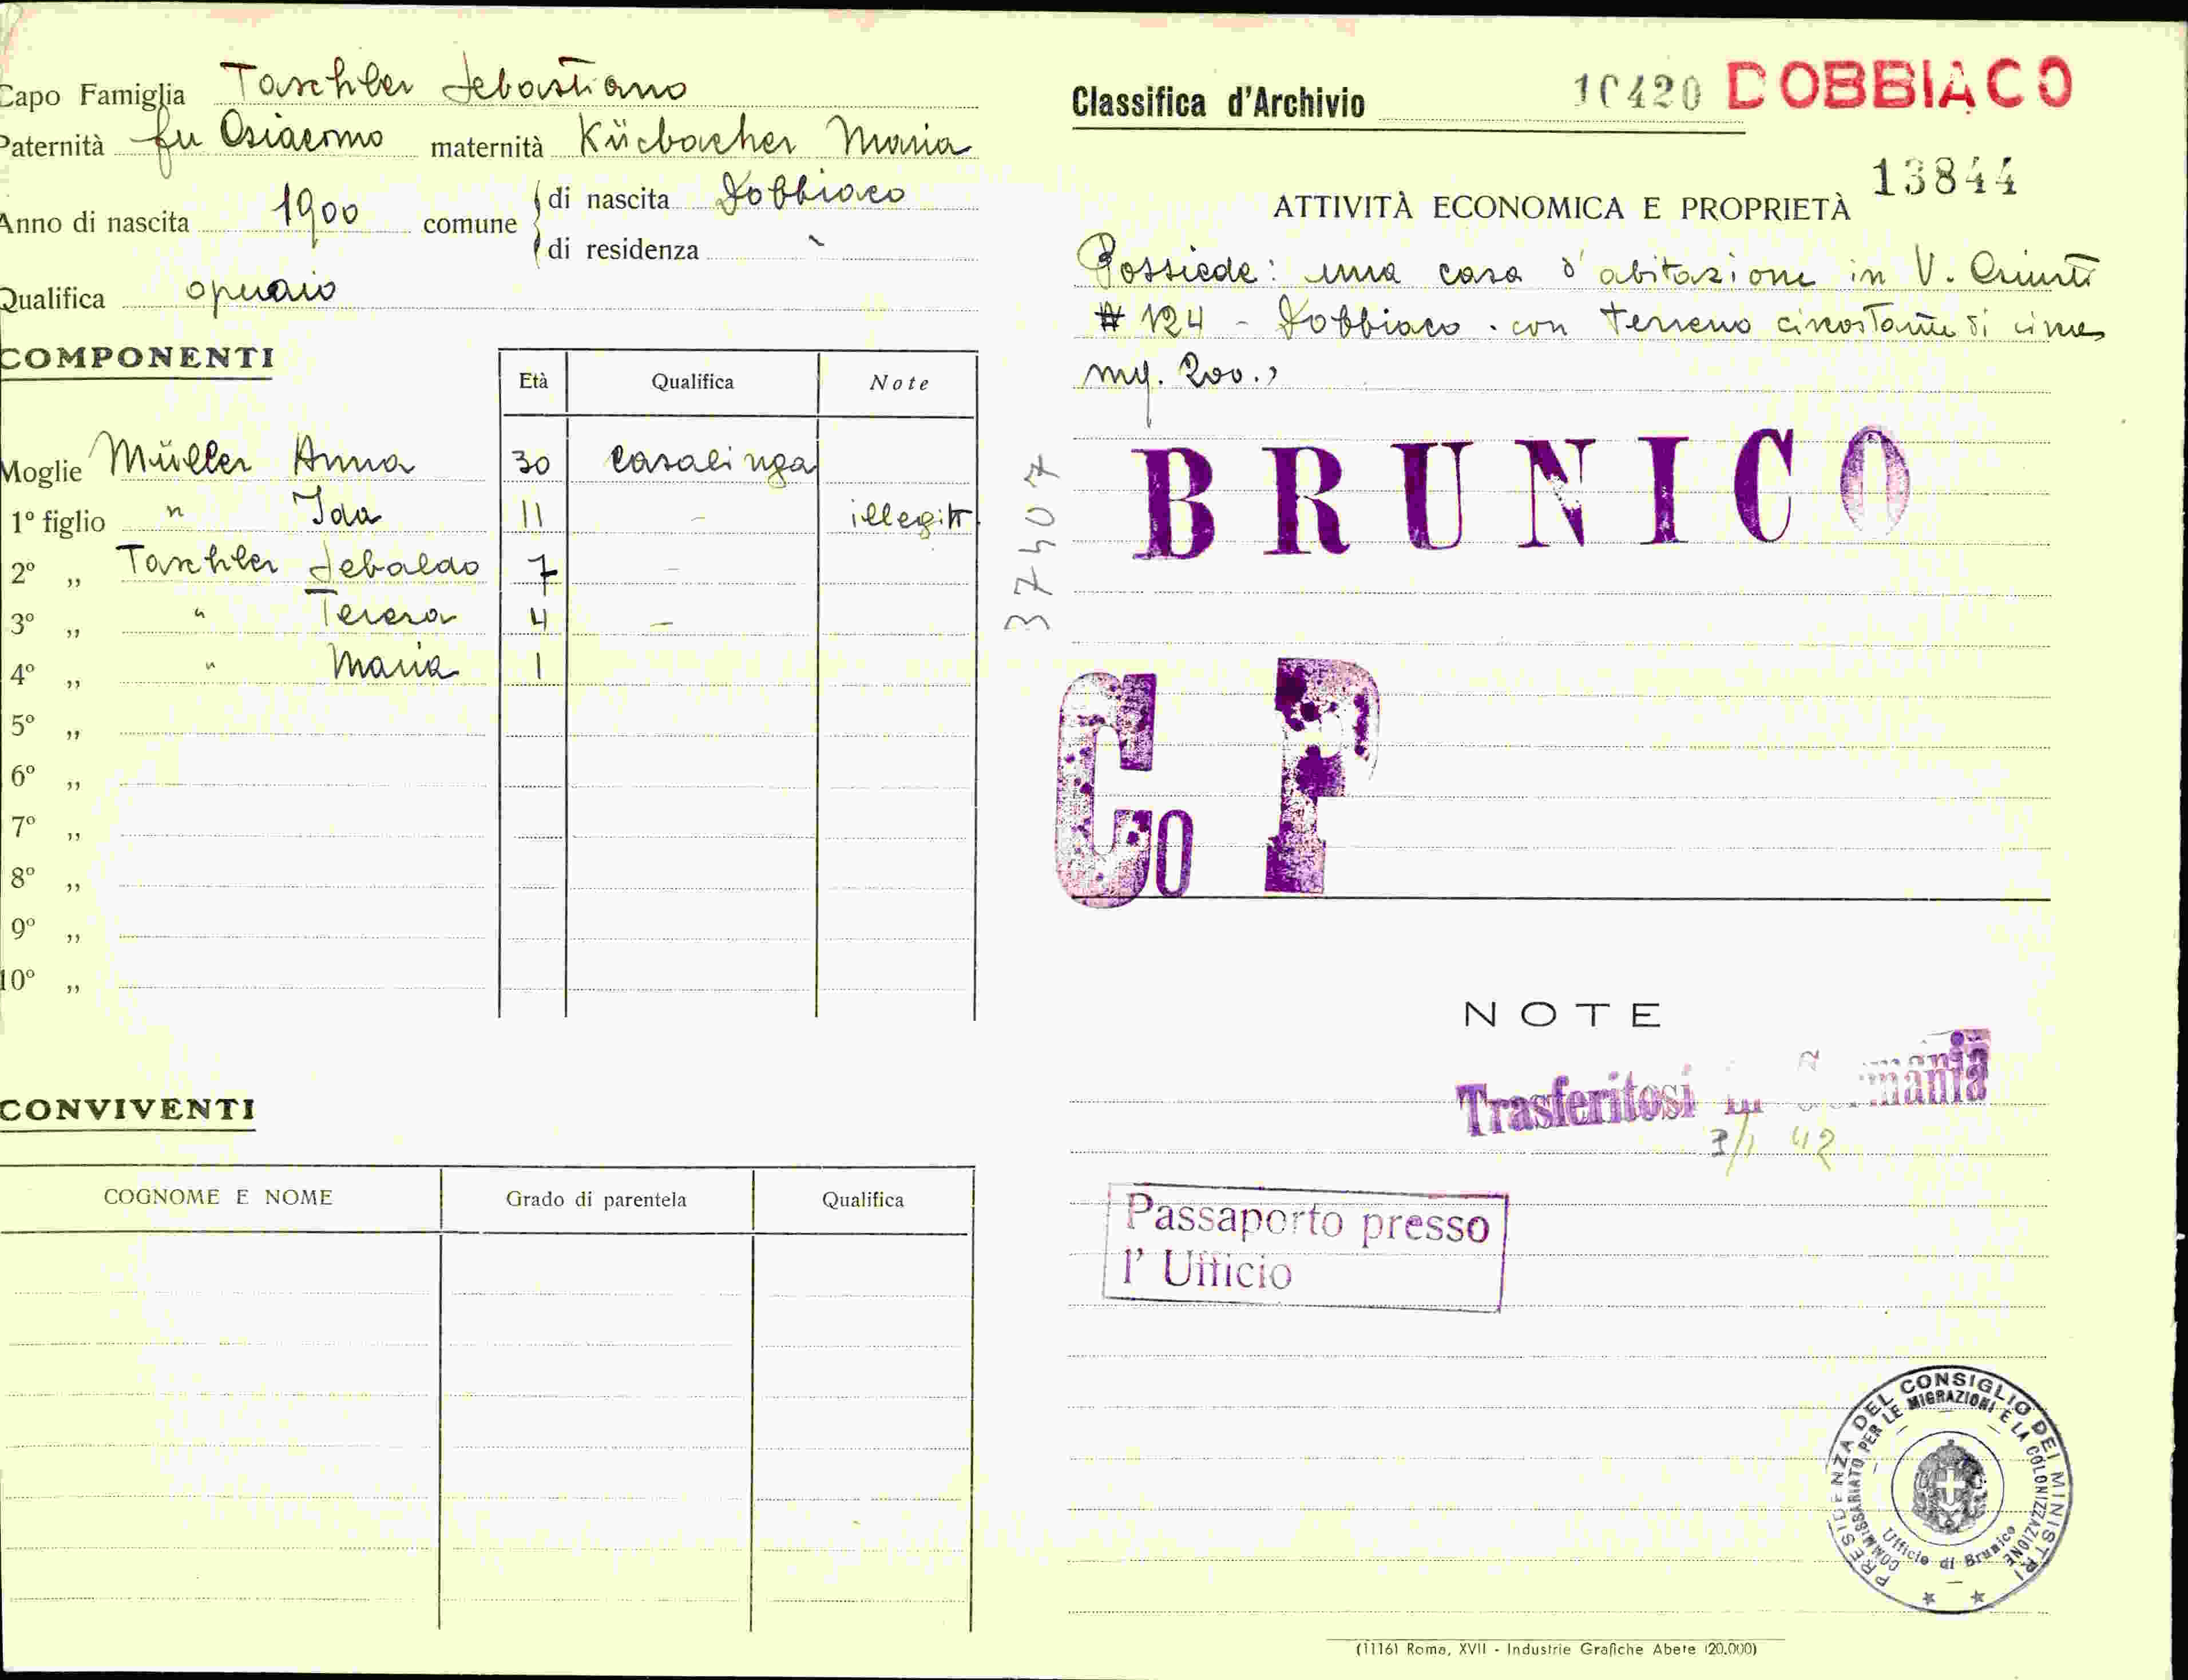 Capo Famiglia Taschler Sebastiano
Paternità fu Giacomo maternità Kücbacher Maria
Anno di nascita 1900 comune di nascita Dobbiaco
di residenza "
Qualifica operaio
COMPONENTI
Età Qualifica Note
Moglie Müller Anna 30 casalinga
1º figlio " Ida 11 - illegitt.
2º " Taschler Sebaldo 7 -
3º " " Teresa 4 -
4º " " Maria 1
5º "
6º "
7º "
8º "
9º "
10º "
CONVIVENTI
COGNOME E NOME Grado di parentela Qualifica
37407
Classifica d'Archivio 10420 DOBBIACO
13844
ATTIVITÀ ECONOMICA E PROPRIETÀ
Possiede: una casa d'abitazione in V.
# 124 - Dobbiaco - con terreno circostante di circa
mq. 200.,
BRUNICO
Co P
NOTE
Trasferitosi in Germania
3/1 42
Passaporto presso
l' Ufficio
PRESIDENZA DEL CONSIGLIO DEI MINISTRI
COMMISSARIATO PER LE MIGRAZIONI E LA COLONIZZAZIONE
Ufficio di Brunico
(1116) Roma, XVII - Industrie Grafiche Abete (20.000)